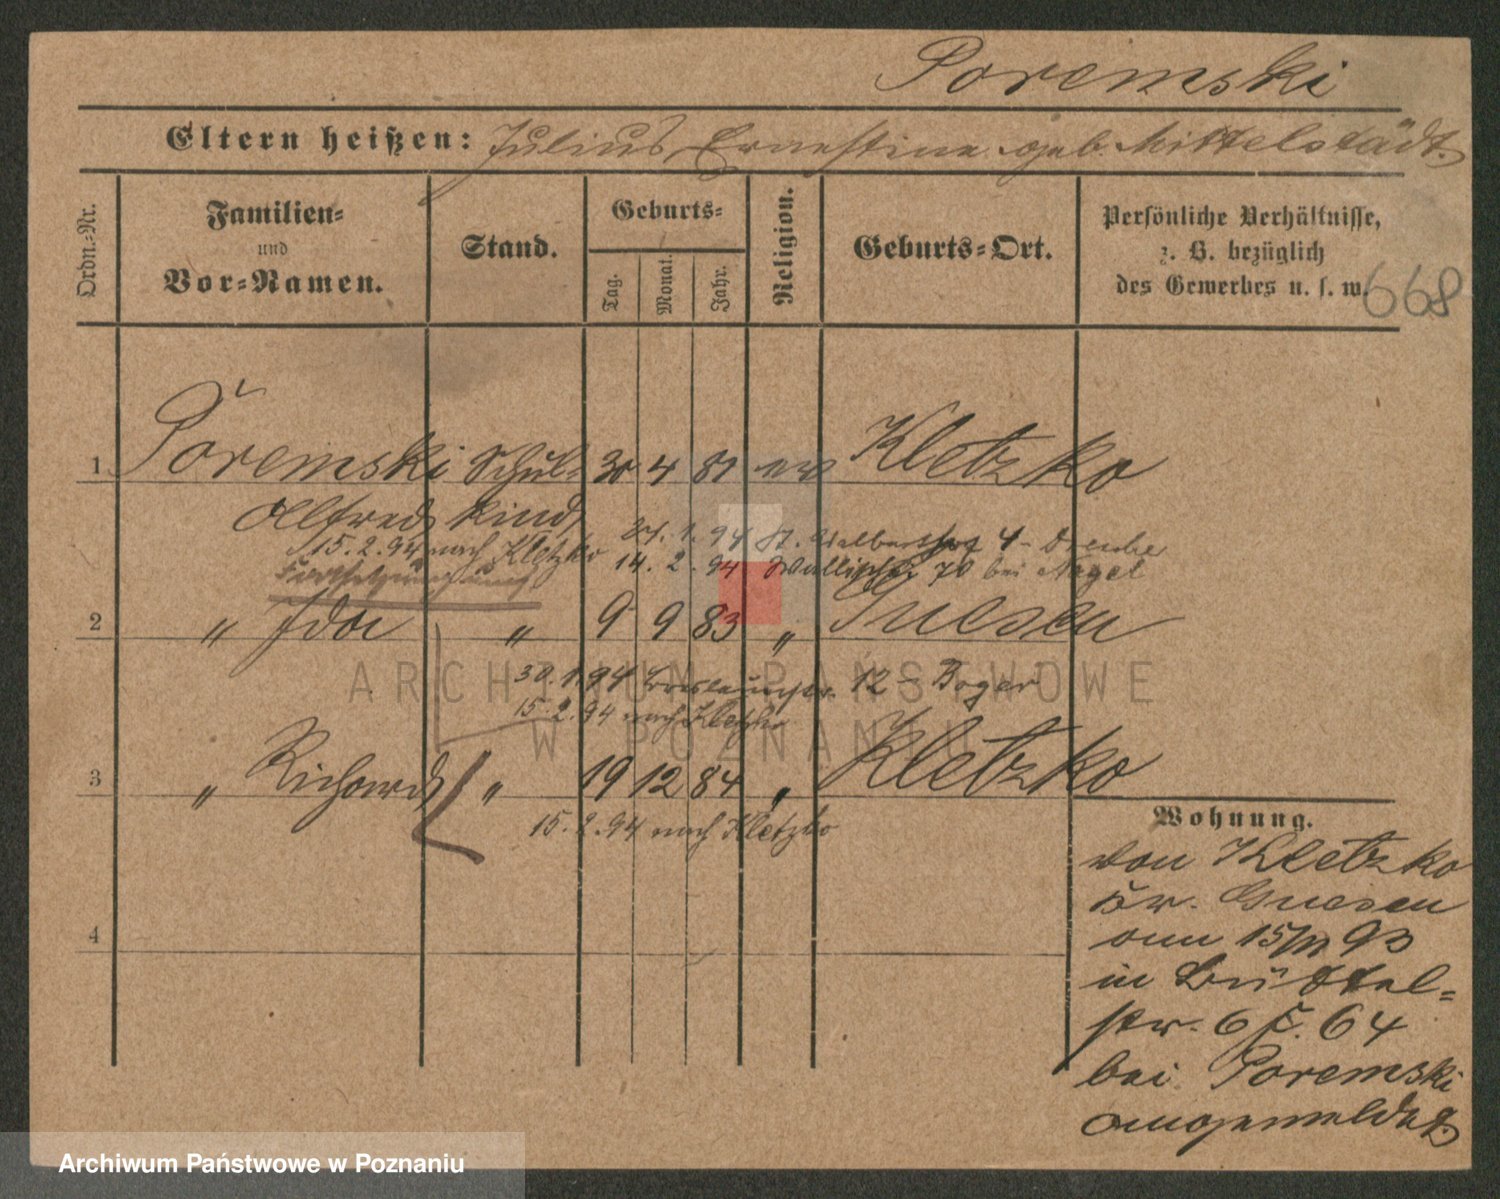 Poremski
Eltern heißen: Julius, Ernestine geb. Mittelstädt.
Ordn.-Nr.
Familien-
und
Vor-Namen.
Stand.
Geburts-
Tag.
Monat.
Jahr.
Religion.
Geburts-Ort.
Persönliche Verhältnisse,
z. B. bezüglich
des Gewerbes u. s. w.
668
1 Poremski Schul- 30 4 81 ev Kletzko
Alfred kind
27. 1. 94 St. Adalbertstr 4
15. 2. 94 nach Kletzko 14. 2. 94 Wallischei 70 bei Nagel
2 " Ida " 9 9 83 " Gnesen
30. 1. 94 Breslauerstr. 12 - Boger
15. 2. 94 nach Kletzko
3 " Richard " 19 12 84 " Kletzko
15. 2. 94 nach Kletzko
4
Wohnung.
von Kletzko
Kr. Gnesen
am 15 93
in Büttel-
str. 6 64
bei Poremski
angemeldet.
ARCHIWUM PAŃSTWOWE
W POZNANIU
Archiwum Państwowe w Poznaniu